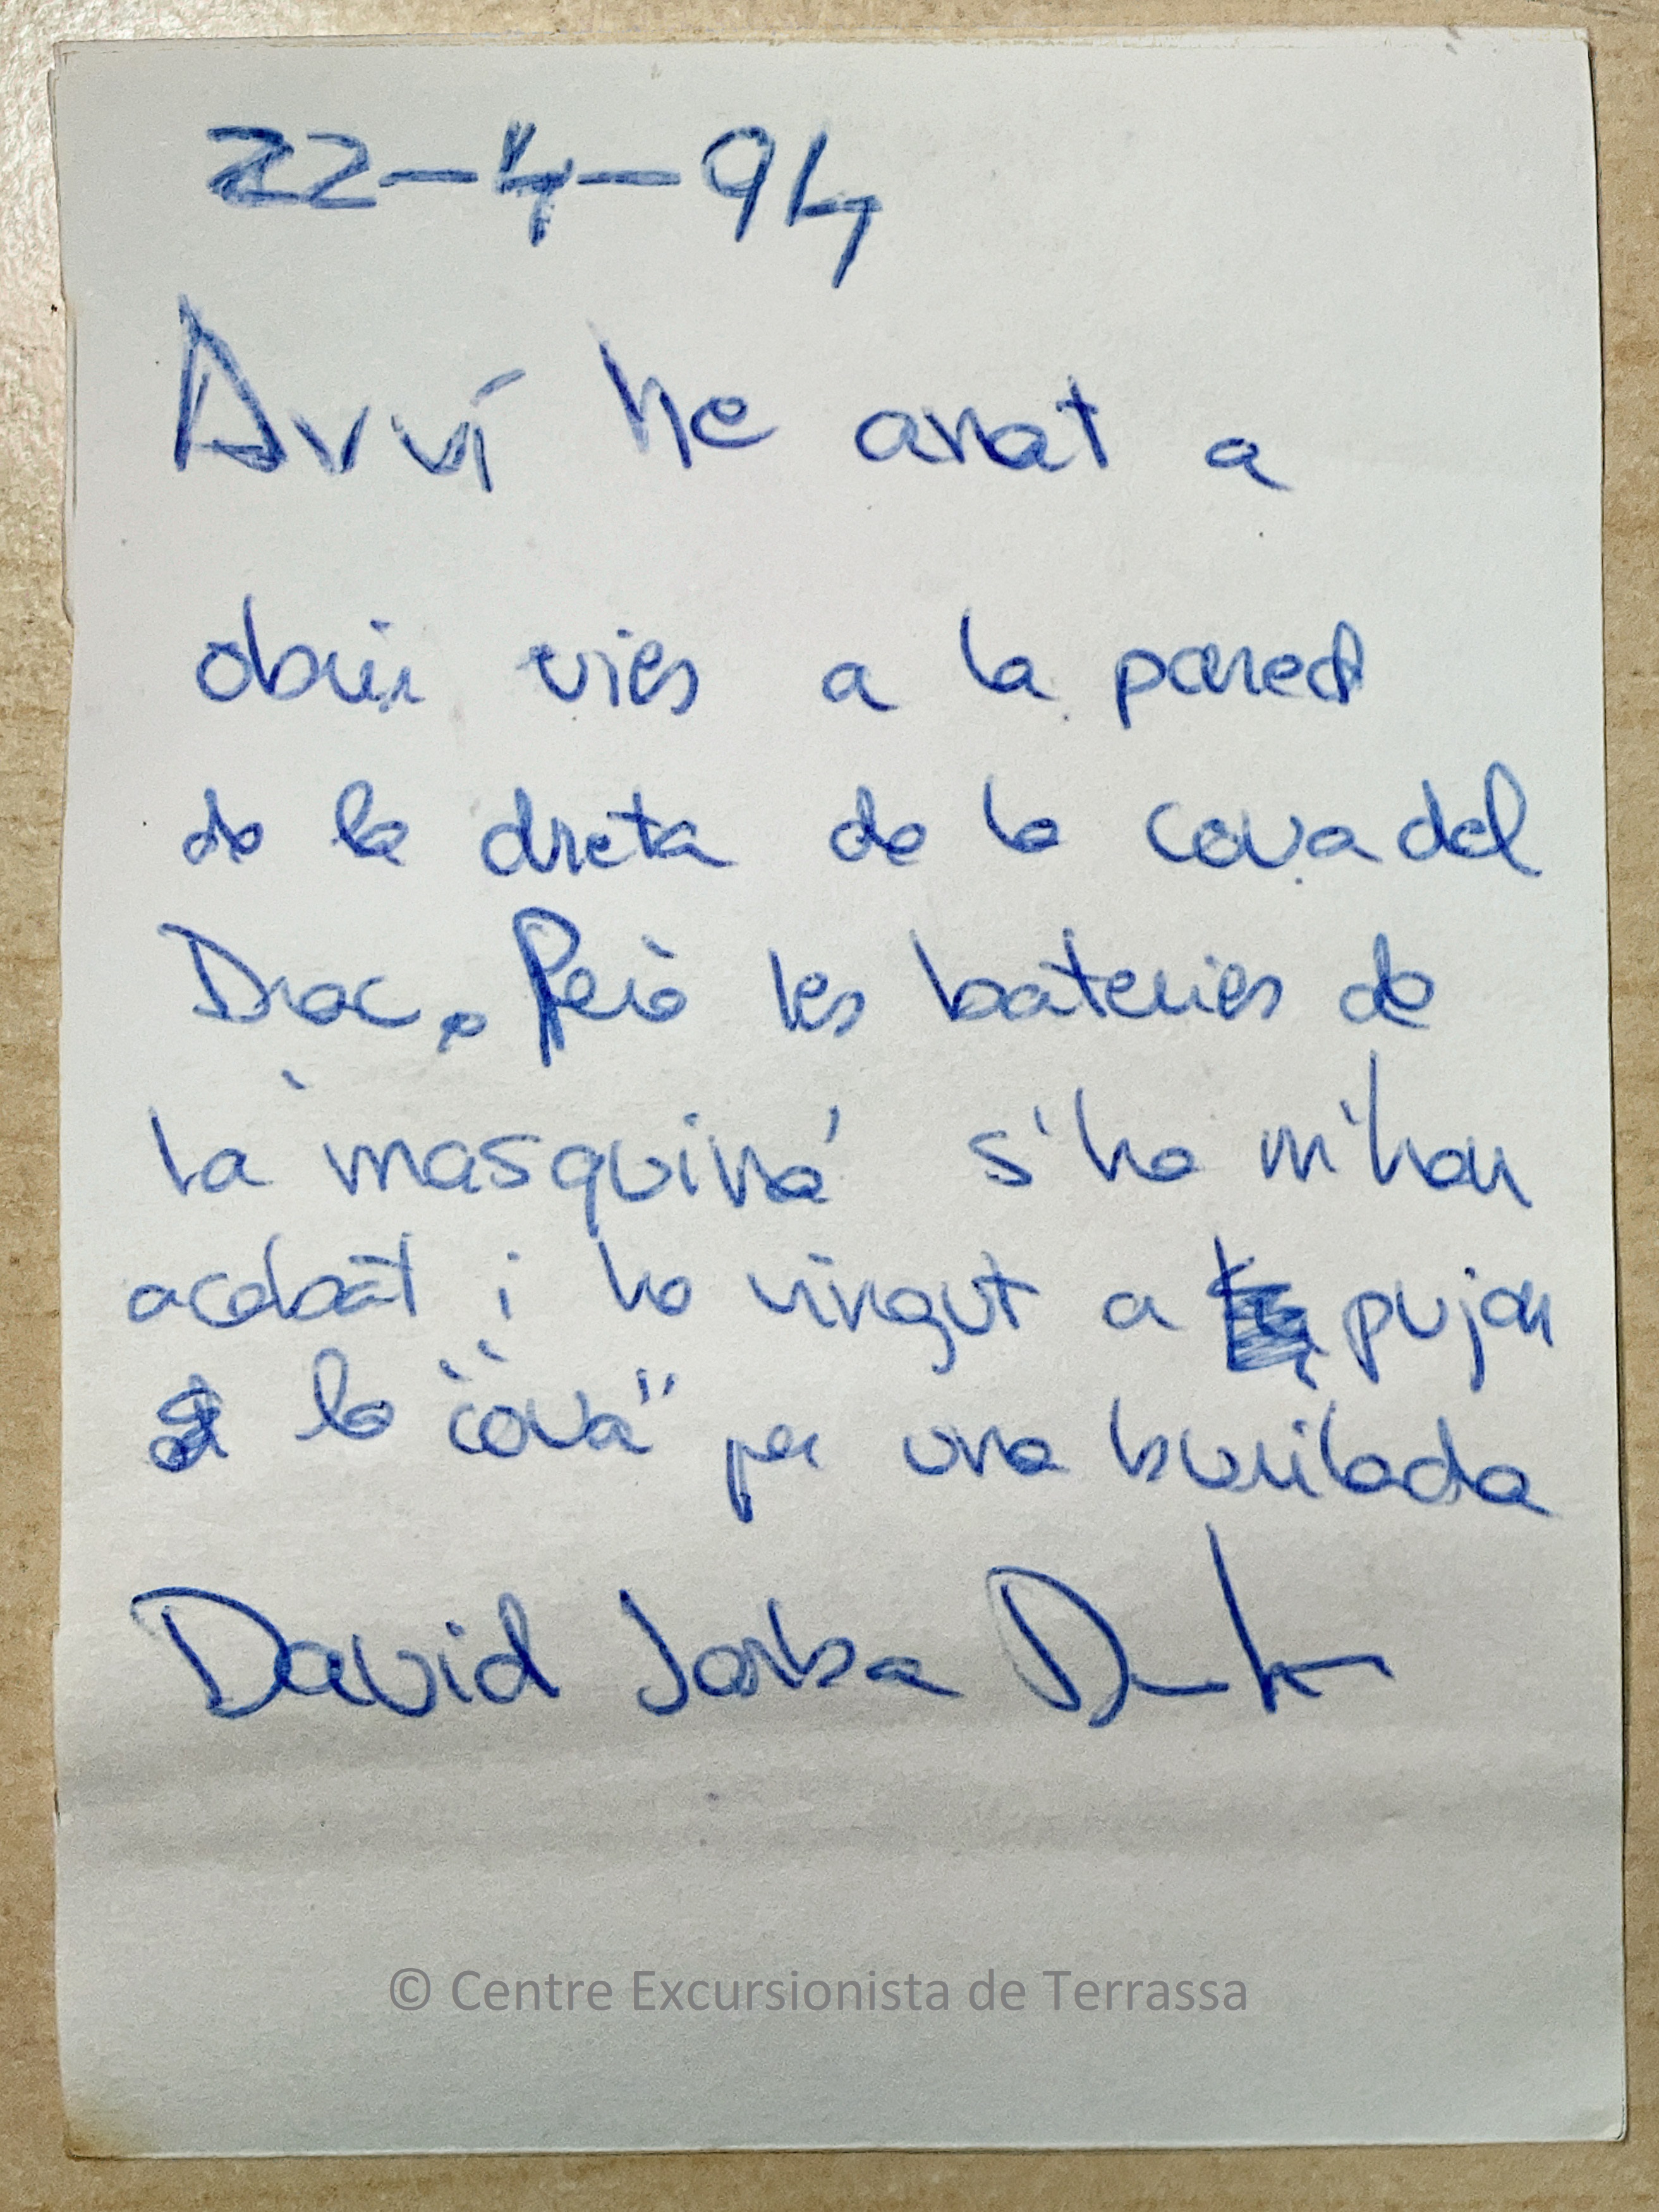 22-4-94
Avuí he anat a
obrir vies a la pared
de la dreta de la cova del
Drac. Peiò les bateries de
la masquina s'ha m'han
acabat i ho vingut a pujar
a la "cova" per una burilada
David Jorba
© Centre Excursionista de Terrassa